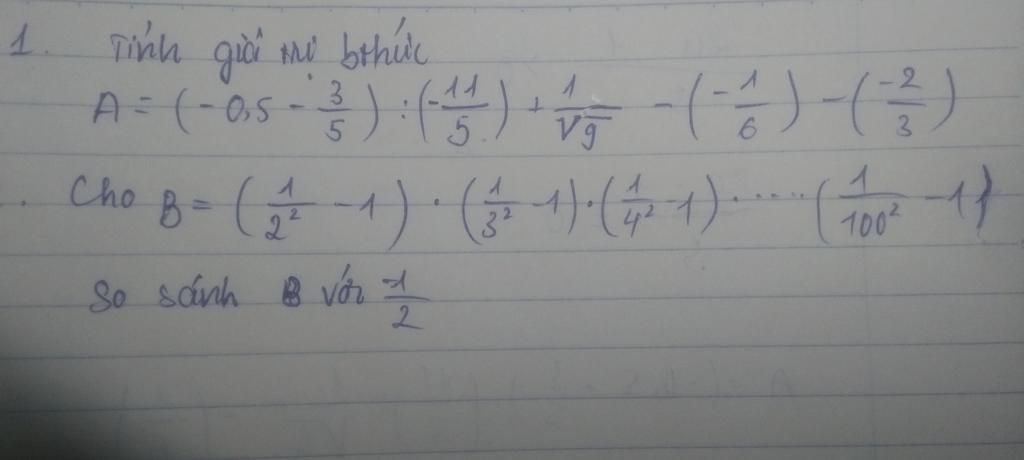 1. Tính giá trị bthức
A = (-0,5 - 3/5) : (-11/5) + 1/√9 - (-1/6) - (-2/3)
. Cho B = (1/2² - 1) · (1/3² - 1) · (1/4² - 1) · ..... (1/100² - 1)
So sánh B với -1/2